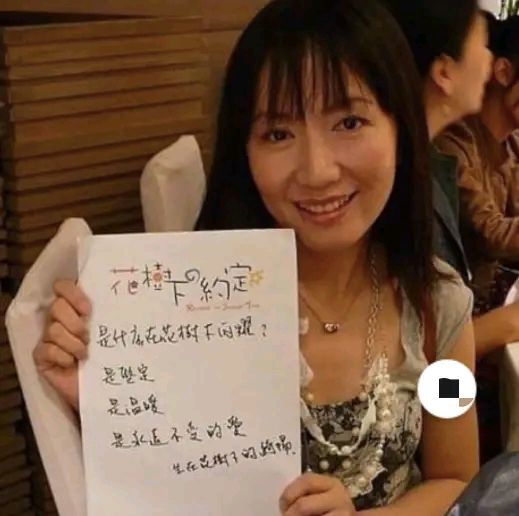 花樹下の約定
是什么在花樹下閃耀？
是堅定
是溫暖
是永遠不變的愛
在花樹下的